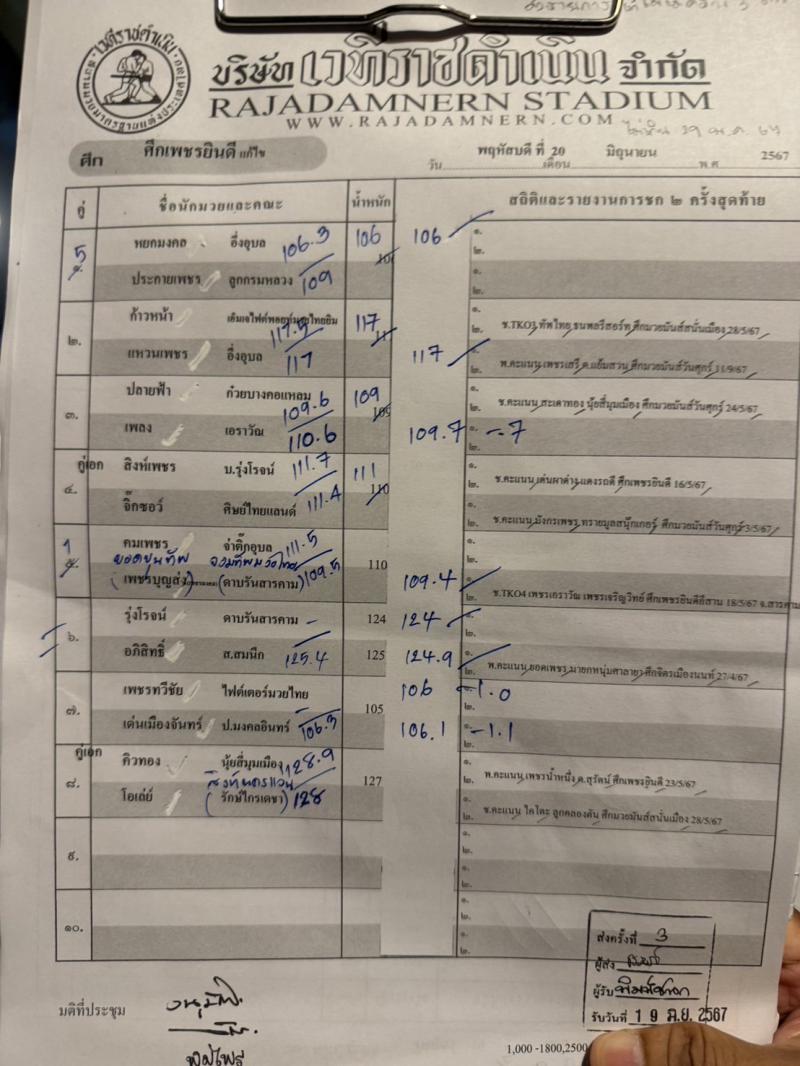 เวทีราชดำเนิน
บริษัท เวทีราชดำเนิน จำกัด
RAJADAMNERN STADIUM
WWW.RAJADAMNERN.COM
ศึก ศึกเพชรยินดี แก้ไข วัน พฤหัสบดี ที่ 20 เดือน มิถุนายน พ.ศ 2567
คู่ ชื่อนักมวยและคณะ น้ำหนัก สถิติและรายงานการชก ๒ ครั้งสุดท้าย
5 หยกมงคล อึ่งอุบล 106.3 106 106 ๑.
๒.
ประกายเพชร ลูกกรมหลวง 109 ๑.
๒.
๒. ก้าวหน้า 117.5 117 ๑.
๒. ช.TKO3 ทัพไทย ธนพลรีสอร์ท ศึกมวยมันส์สนั่นเมือง 28/5/67
แหวนเพชร อึ่งอุบล 117 117 ๑.
๒. พ.คะแนน เพชรเสรี ด.แย้มสวน ศึกมวยมันส์วันศุกร์ 11/9/67
๓. ปลายฟ้า ก๋วยบางคอแหลม 109.6 109 109 ๑.
๒. ช.คะแนน สะเดาทอง นุ้ยสี่มุมเมือง ศึกมวยมันส์วันศุกร์ 24/5/67
เพลง เอราวัณ 110.6 109.7 -.7 ๑.
๒.
คู่เอก
๔. สิงห์เพชร บ.รุ่งโรจน์ 111.7 111 110 ๑.
๒. ช.คะแนน เด่นผาด่าง แดงรถดี ศึกเพชรยินดี 16/5/67
จิ๊กซอว์ ศิษย์ไทยแลนด์ 111.4 ๑.
๒. ช.คะแนน มังกรเพชร ทรายมูลสนุ๊กเกอร์ ศึกมวยมันส์วันศุกร์ 3/5/67
1 ๕. คมเพชร จ่าติ๊กอุบล 111.5 110 ๑.
๒.
ยอดขุนทัพ
(เพชรบุญส่ง) (ดาบรันสารคาม) 109.5 109.4 ๑.
๒. ช.TKO4 เพชรเอราวัณ เพชรเจริญวิทย์ ศึกเพชรยินดีอีสาน 18/5/67 จ.สารคาม
๖. รุ่งโรจน์ ดาบรันสารคาม - 124 124 ๑.
๒.
อภิสิทธิ์ ส.สมนึก 125.4 125 124.9 ๑.
๒. พ.คะแนน ยอดเพชร มายกหนุ่มศาลายา ศึกจิตรเมืองนนท์ 27/4/67
๗. เพชรทวีชัย ไฟต์เตอร์มวยไทย 105 106 -1.0 ๑.
๒.
เด่นเมืองจันทร์ ป.มงคลอินทร์ 106.3 106.1 -1.1 ๑.
๒.
คู่เอก
๘. คิวทอง นุ้ยสี่มุมเมือง 128.9 127 ๑.
๒. พ.คะแนน เพชรน้ำหนึ่ง ด.สุรัตน์ ศึกเพชรยินดี 23/5/67
โอเล่ย์ (รักษ์ไกรเดชา) 128 ๑.
๒. ช.คะแนน ไคโตะ ลูกคลองตัน ศึกมวยมันส์สนั่นเมือง 28/5/67
๙. ๑.
๒.
๑.
๒.
๑๐. ๑.
๒.
๑.
๒.
ส่งครั้งที่ 3
ผู้ส่ง
ผู้รับ
รับวันที่ 19 มิ.ย. 2567
มติที่ประชุม
1,000 -1800,2500